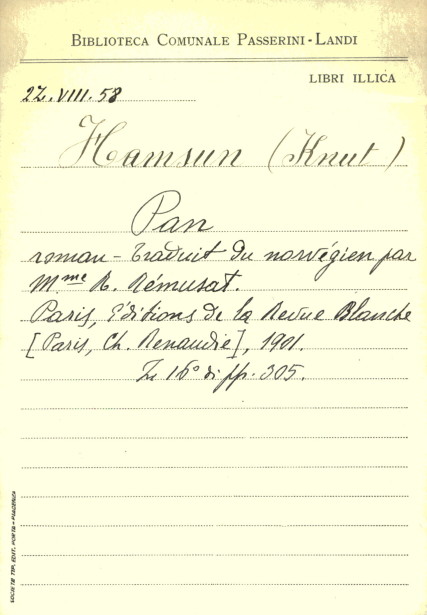 BIBLIOTECA COMUNALE PASSERINI-LANDI
LIBRI ILLICA
2Z.VIII.58
Hamsun (Knut)
Pan
roman - traduit du norvégien par
Mme R. Rémusat.
Paris, Éditions de la Revue Blanche
[Paris, Ch. Renaudie], 1901.
In 16° di pp. 305.
SOCIETÀ TIP. EDIT. PORTA - PIACENZA